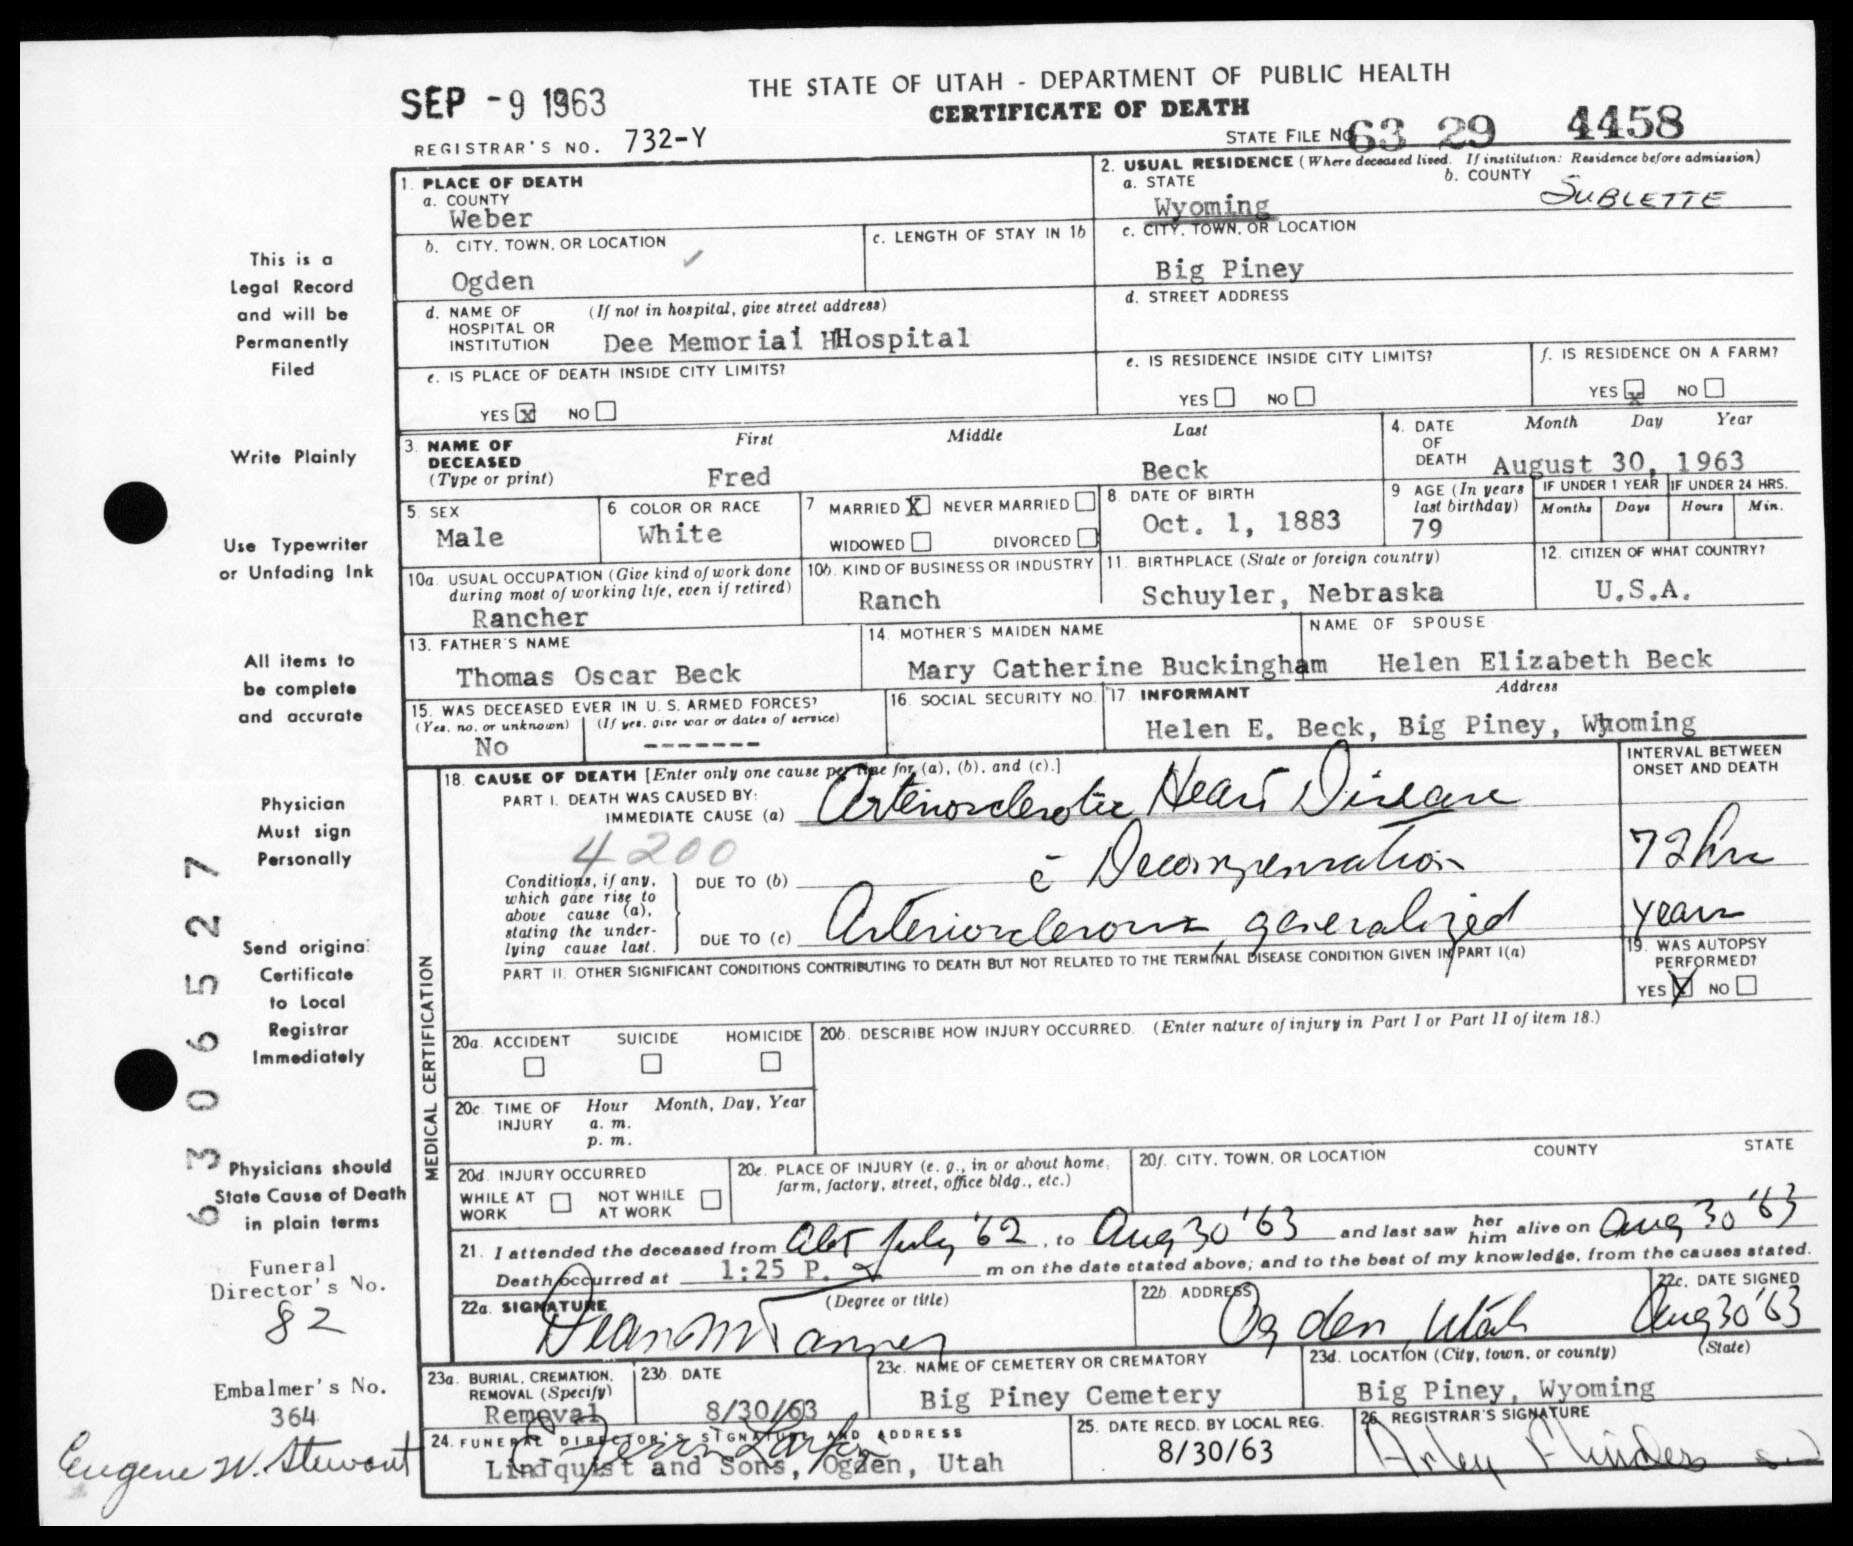 SEP -9 1963
THE STATE OF UTAH - DEPARTMENT OF PUBLIC HEALTH
CERTIFICATE OF DEATH
REGISTRAR'S NO. 732-Y
STATE FILE NO. 63 29 4458
1. PLACE OF DEATH
a. COUNTY
Weber
2. USUAL RESIDENCE (Where deceased lived. If institution: Residence before admission)
a. STATE
b. COUNTY
Wyoming
SUBLETTE
b. CITY, TOWN, OR LOCATION
Ogden
c. LENGTH OF STAY IN 1b
c. CITY, TOWN, OR LOCATION
Big Piney
d. NAME OF HOSPITAL OR INSTITUTION
(If not in hospital, give street address)
Dee Memorial HHospital
d. STREET ADDRESS
e. IS PLACE OF DEATH INSIDE CITY LIMITS?
YES X NO
e. IS RESIDENCE INSIDE CITY LIMITS?
YES NO
f. IS RESIDENCE ON A FARM?
YES X NO
3. NAME OF DECEASED
(Type or print)
First Middle Last
Fred Beck
4. DATE OF DEATH
Month Day Year
August 30, 1963
5. SEX
Male
6 COLOR OR RACE
White
7 MARRIED X NEVER MARRIED
WIDOWED DIVORCED
8. DATE OF BIRTH
Oct. 1, 1883
9 AGE (In years last birthday)
79
IF UNDER 1 YEAR
Months Days
IF UNDER 24 HRS.
Hours Min.
10a. USUAL OCCUPATION (Give kind of work done
during most of working life, even if retired)
Rancher
10b. KIND OF BUSINESS OR INDUSTRY
Ranch
11. BIRTHPLACE (State or foreign country)
Schuyler, Nebraska
12. CITIZEN OF WHAT COUNTRY?
U.S.A.
13. FATHER'S NAME
Thomas Oscar Beck
14. MOTHER'S MAIDEN NAME
Mary Catherine Buckingham
NAME OF SPOUSE
Helen Elizabeth Beck
15. WAS DECEASED EVER IN U. S. ARMED FORCES?
(Yes, no, or unknown) (If yes, give war or dates of service)
No -------
16. SOCIAL SECURITY NO.
17. INFORMANT Address
Helen E. Beck, Big Piney, Wyoming
MEDICAL CERTIFICATION
18. CAUSE OF DEATH [Enter only one cause per line for (a), (b), and (c).]
PART I. DEATH WAS CAUSED BY:
IMMEDIATE CAUSE (a) Arteriosclerotic Heart Disease
INTERVAL BETWEEN
ONSET AND DEATH
4200
Conditions, if any,
which gave rise to
above cause (a),
stating the under-
lying cause last.
DUE TO (b) c̄ Decompensation
72 hrs
DUE TO (c) Arteriosclerosis, generalized
years
PART II. OTHER SIGNIFICANT CONDITIONS CONTRIBUTING TO DEATH BUT NOT RELATED TO THE TERMINAL DISEASE CONDITION GIVEN IN PART I(a)
19. WAS AUTOPSY
PERFORMED?
YES X NO
20a. ACCIDENT SUICIDE HOMICIDE
20b. DESCRIBE HOW INJURY OCCURRED. (Enter nature of injury in Part I or Part II of item 18.)
20c. TIME OF INJURY
Hour Month, Day, Year
a. m.
p. m.
20d. INJURY OCCURRED
WHILE AT WORK NOT WHILE AT WORK
20e. PLACE OF INJURY (e. g., in or about home,
farm, factory, street, office bldg., etc.)
20f. CITY, TOWN, OR LOCATION COUNTY STATE
21. I attended the deceased from Abt July '62, to Aug 30 '63 and last saw her him alive on Aug 30 '63
Death occurred at 1:25 P. m on the date stated above; and to the best of my knowledge, from the causes stated.
22a. SIGNATURE (Degree or title)
Dean M Tanner
22b. ADDRESS
Ogden, Utah
22c. DATE SIGNED
Aug 30 '63
23a. BURIAL, CREMATION,
REMOVAL (Specify)
Removal
23b. DATE
8/30/63
23c. NAME OF CEMETERY OR CREMATORY
Big Piney Cemetery
23d. LOCATION (City, town, or county) (State)
Big Piney, Wyoming
24. FUNERAL DIRECTOR'S SIGNATURE AND ADDRESS
Lindquist and Sons, Ogden, Utah
25. DATE RECD. BY LOCAL REG.
8/30/63
26. REGISTRAR'S SIGNATURE
Arley Flinders
This is a
Legal Record
and will be
Permanently
Filed
Write Plainly
Use Typewriter
or Unfading Ink
All items to
be complete
and accurate
Physician
Must sign
Personally
Send original
Certificate
to Local
Registrar
Immediately
Physicians should
State Cause of Death
in plain terms
Funeral
Director's No.
82
Embalmer's No.
364
Eugene W. Stewart
6306527